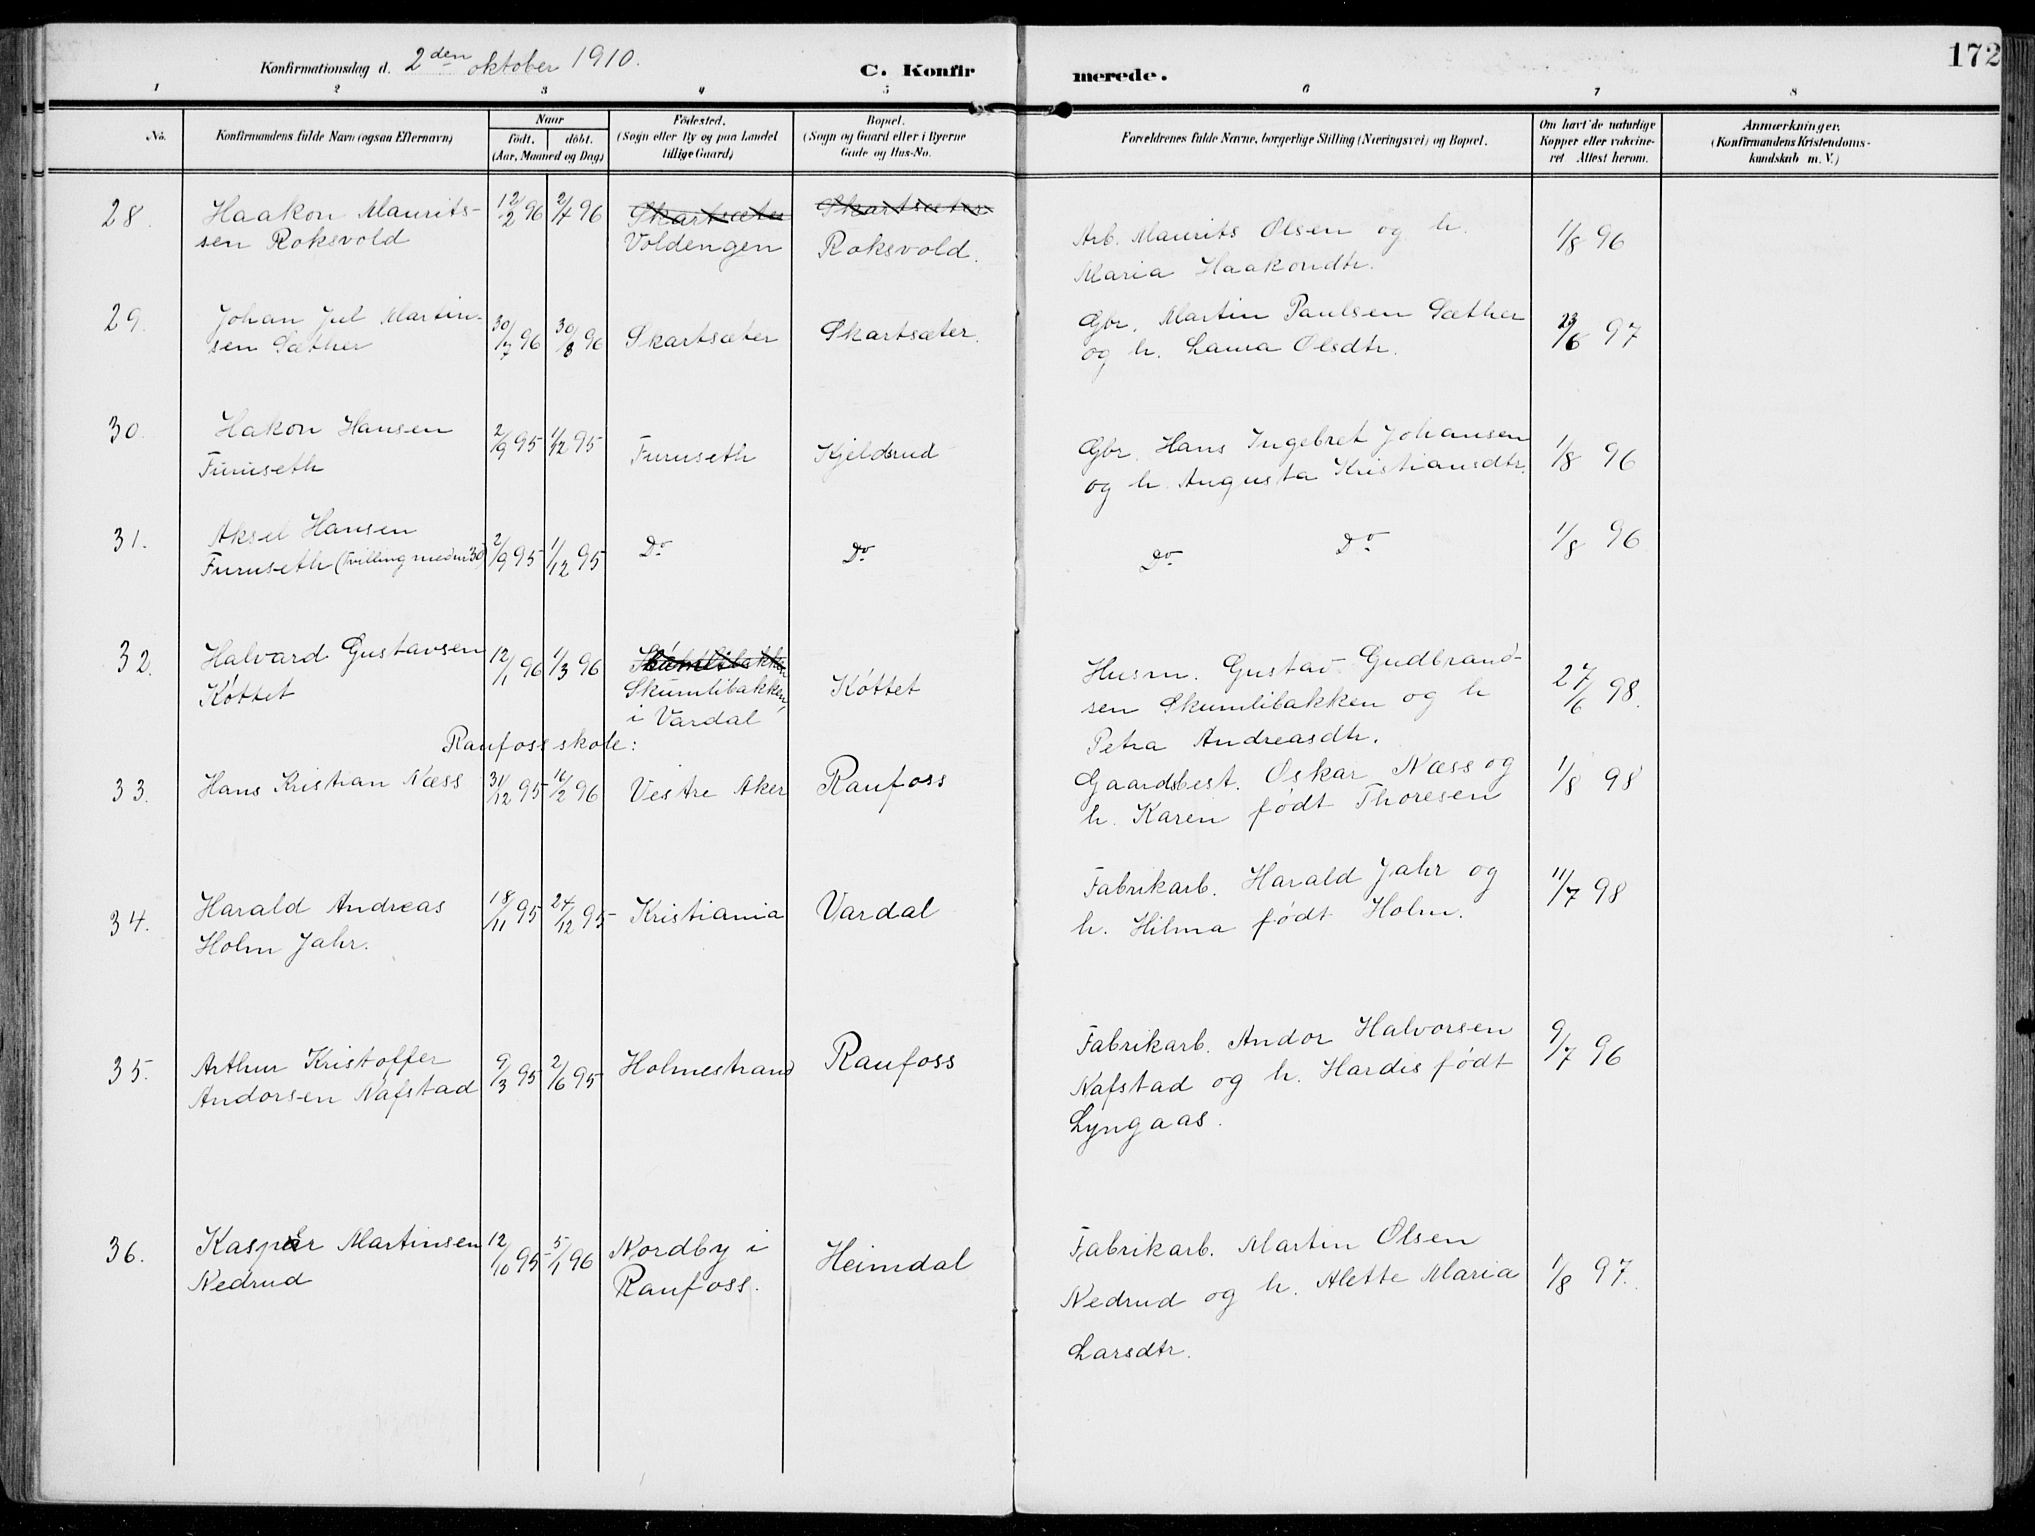 Konfirmationsdag d. 2den oktober 1910. C. Konfirmerede. 172
1 2 3 4 5 6 7 8
No. Konfirmandens fulde Navn (ogsaa Efternavn) Naar født. døbt. (Aar, Maaned og Dag) Fødested. (Sogn eller By og paa Landet tillige Gaard) Bopæl. (Sogn og Gaard eller i Byerne Gade og Hus-No. Forældrenes fulde Navne, borgerlige Stilling (Næringsvei) og Bopæl. Om havt de naturlige Kopper eller vakcineret Attest herom. Anmærkninger. (Konfirmandens Kristendomskundskab m. V.)
28. Haakon Maurits- 12/2 96 2/4 96 Skartsæter Skartsæter Arb. Maurits Olsen og h. 1/8 96
sen Roksvold Voldengen Roksvold. Maria Haakondtr.
29. Johan Jul Martin- 30/7 96 30/8 96 Skartsæter Skartsæter. Gbr. Martin Paulsen Sæther 23/6 97
sen Sæther og h. Laura Olsdtr.
30. Hakon Hansen 2/9 95 1/12 95 Furuseth Kjeldsrud Gbr. Hans Ingebret Johansen 1/8 96
Furuseth og h. Augusta Kristiansdtr.
31. Aksel Hansen 2/9 95 1/12 95 Do Do Do Do 1/8 96
Furuseth (Tvilling med nr 30)
32. Halvard Gustavsen 12/1 96 1/3 96 Skumlibakken Køttet Husm. Gustav Gudbrand- 27/6 98.
Køttet Skumlibakken, sen Skumlibakken og h
i Vardal Petra Andreasdtr.
Raufoss skole:
33. Hans Kristian Næss 31/12 95 16/2 96 Vestre Aker Raufoss Gaardsbest. Oskar Næss og 1/8 98
h. Karen født Thoresen
34. Harald Andreas 18/11 95 24/12 95 Kristiania Vardal Fabrikarb. Harald Jahr og 11/7 98
Holm Jahr. h. Hilma født Holm.
35. Arthur Kristoffer 9/3 95 2/6 95 Holmestrand Raufoss Fabrikarb. Andor Halvorsen 9/7 96
Andorsen Nafstad Nafstad og h. Hardis født
Lyngaas.
36. Kasper Martinsen 12/10 95 5/1 96 Nordby i Heimdal Fabrikarb. Martin Olsen 1/8 97.
Nedrud Raufoss. Nedrud og h. Alette Maria
Larsdtr.